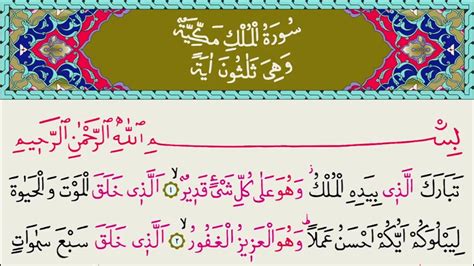 سُورَةُ الْمُلْكِ مَكِّيَّةٌ
وَهِىَ ثَلٰثُونَ اٰيَةً
بِسْمِ اللّٰهِ الرَّحْمٰنِ الرَّحِيمِ
تَبَارَكَ الَّذِى بِيَدِهِ الْمُلْكُ وَهُوَ عَلٰى كُلِّ شَىْءٍ قَدِيرٌۙ ١ اَلَّذِى خَلَقَ الْمَوْتَ وَالْحَيٰوةَ
لِيَبْلُوَكُمْ اَيُّكُمْ اَحْسَنُ عَمَلًاۜ وَهُوَ الْعَزِيزُ الْغَفُورُۙ ٢ اَلَّذِى خَلَقَ سَبْعَ سَمٰوَاتٍ